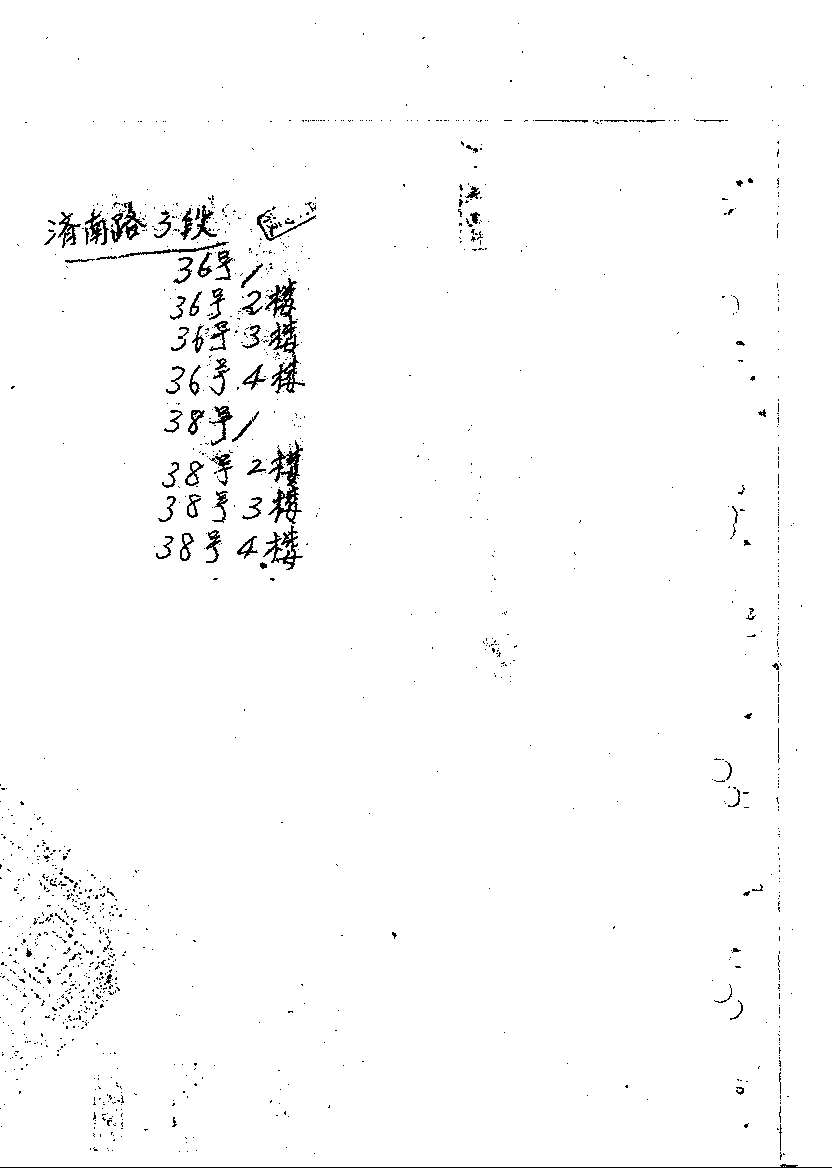 济南路3段
36号/
36号2楼
36号3楼
36号4楼
38号/
38号2楼
38号3楼
38号4楼